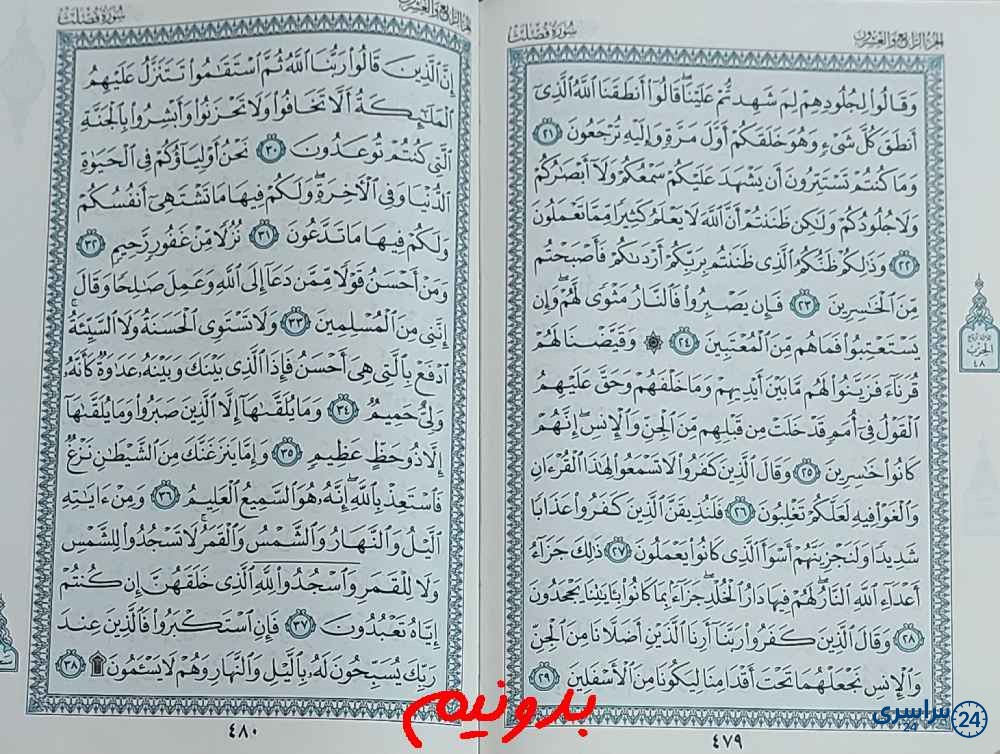 الجزء الرابع والعشرون
سورة فصلت
وَقَالُوا۟ لِجُلُودِهِمْ لِمَ شَهِدتُّمْ عَلَيْنَا ۖ قَالُوٓا۟ أَنطَقَنَا ٱللَّهُ ٱلَّذِىٓ
أَنطَقَ كُلَّ شَىْءٍ وَهُوَ خَلَقَكُمْ أَوَّلَ مَرَّةٍ وَإِلَيْهِ تُرْجَعُونَ ٢١
وَمَا كُنتُمْ تَسْتَتِرُونَ أَن يَشْهَدَ عَلَيْكُمْ سَمْعُكُمْ وَلَآ أَبْصَـٰرُكُمْ
وَلَا جُلُودُكُمْ وَلَـٰكِن ظَنَنتُمْ أَنَّ ٱللَّهَ لَا يَعْلَمُ كَثِيرًا مِّمَّا تَعْمَلُونَ
٢٢ وَذَٰلِكُمْ ظَنُّكُمُ ٱلَّذِى ظَنَنتُم بِرَبِّكُمْ أَرْدَىٰكُمْ فَأَصْبَحْتُم
مِّنَ ٱلْخَـٰسِرِينَ ٢٣ فَإِن يَصْبِرُوا۟ فَٱلنَّارُ مَثْوًى لَّهُمْ ۖ وَإِن
يَسْتَعْتِبُوا۟ فَمَا هُم مِّنَ ٱلْمُعْتَبِينَ ٢٤ ۞ وَقَيَّضْنَا لَهُمْ
قُرَنَآءَ فَزَيَّنُوا۟ لَهُم مَّا بَيْنَ أَيْدِيهِمْ وَمَا خَلْفَهُمْ وَحَقَّ عَلَيْهِمُ
ٱلْقَوْلُ فِىٓ أُمَمٍ قَدْ خَلَتْ مِن قَبْلِهِم مِّنَ ٱلْجِنِّ وَٱلْإِنسِ ۖ إِنَّهُمْ
كَانُوا۟ خَـٰسِرِينَ ٢٥ وَقَالَ ٱلَّذِينَ كَفَرُوا۟ لَا تَسْمَعُوا۟ لِهَـٰذَا ٱلْقُرْءَانِ
وَٱلْغَوْا۟ فِيهِ لَعَلَّكُمْ تَغْلِبُونَ ٢٦ فَلَنُذِيقَنَّ ٱلَّذِينَ كَفَرُوا۟ عَذَابًا
شَدِيدًا وَلَنَجْزِيَنَّهُمْ أَسْوَأَ ٱلَّذِى كَانُوا۟ يَعْمَلُونَ ٢٧ ذَٰلِكَ جَزَآءُ
أَعْدَآءِ ٱللَّهِ ٱلنَّارُ ۖ لَهُمْ فِيهَا دَارُ ٱلْخُلْدِ ۖ جَزَآءًۢ بِمَا كَانُوا۟ بِـَٔايَـٰتِنَا يَجْحَدُونَ
٢٨ وَقَالَ ٱلَّذِينَ كَفَرُوا۟ رَبَّنَآ أَرِنَا ٱلَّذَيْنِ أَضَلَّانَا مِنَ ٱلْجِنِّ
وَٱلْإِنسِ نَجْعَلْهُمَا تَحْتَ أَقْدَامِنَا لِيَكُونَا مِنَ ٱلْأَسْفَلِينَ ٢٩
الحزب
٤٨
٤٧٩
الجزء الرابع والعشرون
سورة فصلت
إِنَّ ٱلَّذِينَ قَالُوا۟ رَبُّنَا ٱللَّهُ ثُمَّ ٱسْتَقَـٰمُوا۟ تَتَنَزَّلُ عَلَيْهِمُ
ٱلْمَلَـٰٓئِكَةُ أَلَّا تَخَافُوا۟ وَلَا تَحْزَنُوا۟ وَأَبْشِرُوا۟ بِٱلْجَنَّةِ
ٱلَّتِى كُنتُمْ تُوعَدُونَ ٣٠ نَحْنُ أَوْلِيَآؤُكُمْ فِى ٱلْحَيَوٰةِ
ٱلدُّنْيَا وَفِى ٱلْـَٔاخِرَةِ ۖ وَلَكُمْ فِيهَا مَا تَشْتَهِىٓ أَنفُسُكُمْ
وَلَكُمْ فِيهَا مَا تَدَّعُونَ ٣١ نُزُلًا مِّنْ غَفُورٍ رَّحِيمٍ ٣٢
وَمَنْ أَحْسَنُ قَوْلًا مِّمَّن دَعَآ إِلَى ٱللَّهِ وَعَمِلَ صَـٰلِحًا وَقَالَ
إِنَّنِى مِنَ ٱلْمُسْلِمِينَ ٣٣ وَلَا تَسْتَوِى ٱلْحَسَنَةُ وَلَا ٱلسَّيِّئَةُ ۚ
ٱدْفَعْ بِٱلَّتِى هِىَ أَحْسَنُ فَإِذَا ٱلَّذِى بَيْنَكَ وَبَيْنَهُۥ عَدَٰوَةٌ كَأَنَّهُۥ
وَلِىٌّ حَمِيمٌ ٣٤ وَمَا يُلَقَّىٰهَآ إِلَّا ٱلَّذِينَ صَبَرُوا۟ وَمَا يُلَقَّىٰهَآ
إِلَّا ذُو حَظٍّ عَظِيمٍ ٣٥ وَإِمَّا يَنزَغَنَّكَ مِنَ ٱلشَّيْطَـٰنِ نَزْغٌ
فَٱسْتَعِذْ بِٱللَّهِ ۖ إِنَّهُۥ هُوَ ٱلسَّمِيعُ ٱلْعَلِيمُ ٣٦ وَمِنْ ءَايَـٰتِهِ
ٱلَّيْلُ وَٱلنَّهَارُ وَٱلشَّمْسُ وَٱلْقَمَرُ ۚ لَا تَسْجُدُوا۟ لِلشَّمْسِ
وَلَا لِلْقَمَرِ وَٱسْجُدُوا۟ لِلَّهِ ٱلَّذِى خَلَقَهُنَّ إِن كُنتُمْ
إِيَّاهُ تَعْبُدُونَ ٣٧ فَإِنِ ٱسْتَكْبَرُوا۟ فَٱلَّذِينَ عِندَ
رَبِّكَ يُسَبِّحُونَ لَهُۥ بِٱلَّيْلِ وَٱلنَّهَارِ وَهُمْ لَا يَسْـَٔمُونَ ۩ ٣٨
٤٨٠
بدونیم
سراسری
24
24